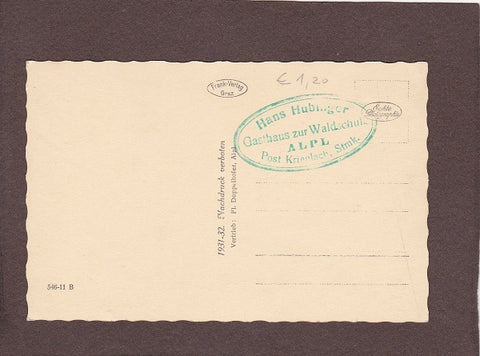 Frank-Verlag
Graz
€ 1,20
Hans Hubinger
Gasthaus zur Waldschule
ALPL
Post Krieglach, Stmk.
Echte
Photographie
1931-32. Nachdruck verboten
Vertrieb: Fl. Doppelhofer, Alpl
546-11 B